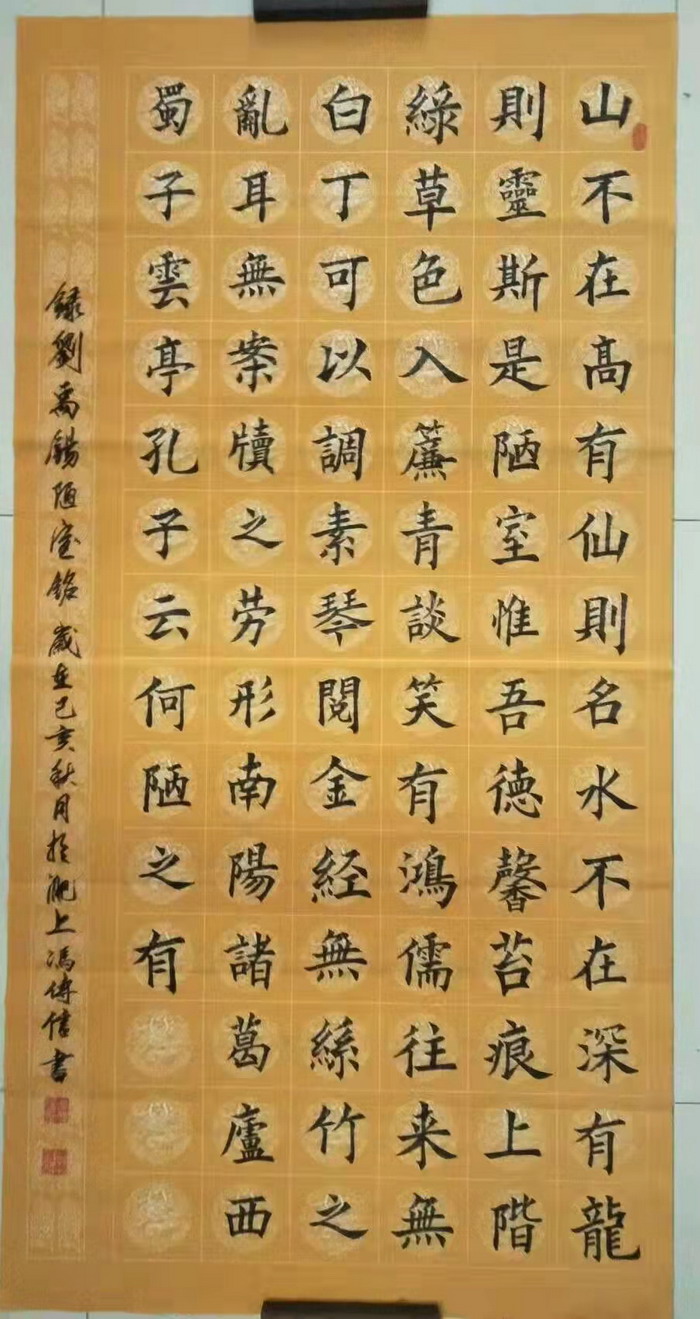 山不在高有仙則名水不在深有龍
則靈斯是陋室惟吾德馨苔痕上階
綠草色入簾青談笑有鴻儒往来無
白丁可以調素琴閱金経無絲竹之
亂耳無案牘之劳形南陽諸葛廬西
蜀子雲亭孔子云何陋之有
録劉禹錫陋室銘歲在己亥秋月於淝上馮傳信書